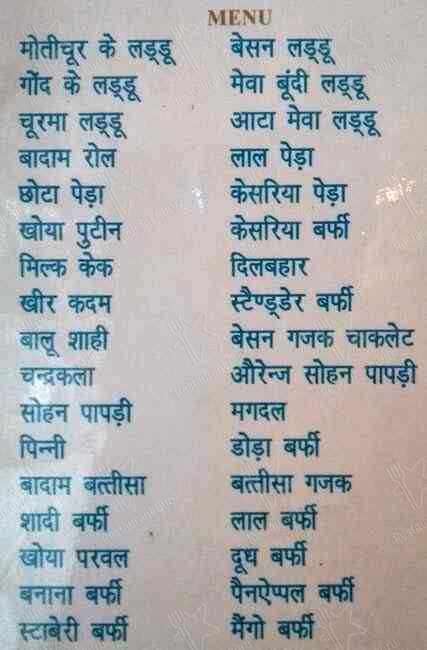 MENU
मोतीचूर के लड्डू बेसन लड्डू
गोंद के लड्डू मेवा बूंदी लड्डू
चूरमा लड्डू आटा मेवा लड्डू
बादाम रोल लाल पेड़ा
छोटा पेड़ा केसरिया पेड़ा
खोया पुटीन केसरिया बर्फी
मिल्क केक दिलबहार
खीर कदम स्टैण्ड्डेर बर्फी
बालू शाही बेसन गजक चाकलेट
चन्द्रकला औरेन्ज सोहन पापड़ी
सोहन पापड़ी मगदल
पिन्नी डोड़ा बर्फी
बादाम बत्तीसा बत्तीसा गजक
शादी बर्फी लाल बर्फी
खोया परवल दूध बर्फी
बनाना बर्फी पैनऐप्पल बर्फी
स्टाबेरी बर्फी मैंगो बर्फी